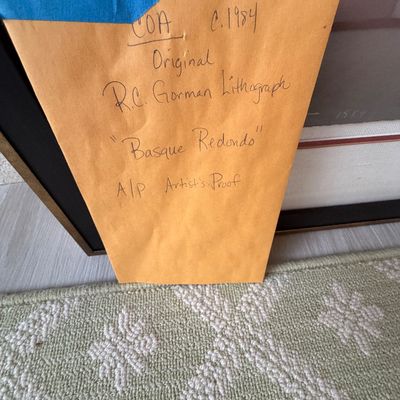 COA c.1984
Original
R.C. Gorman Lithograph
"Basque Redondo"
A/P Artist's Proof
1984